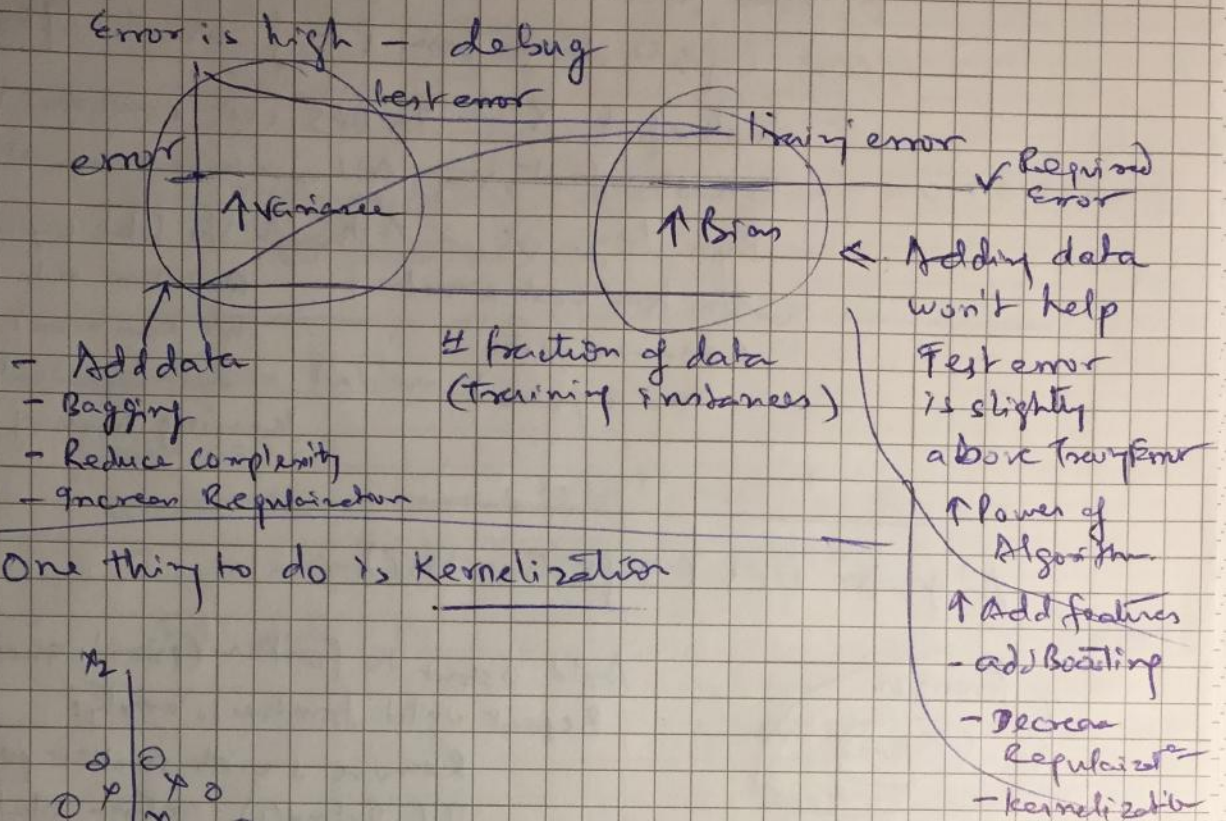 Error is high - debug
test error
error
Training error
✓ Required
Error
↑ Variance
↑ Bias
← Adding data
won't help
Test error
is slightly
above Train Error
↑ Power of
Algorithm
↑ Add features
- add Boosting
- Decrease
- Kernelization
# fraction of data
(Training instances)
- Add data
- Bagging
- Reduce Complexity
- Increase
One thing to do is Kernelization
x2